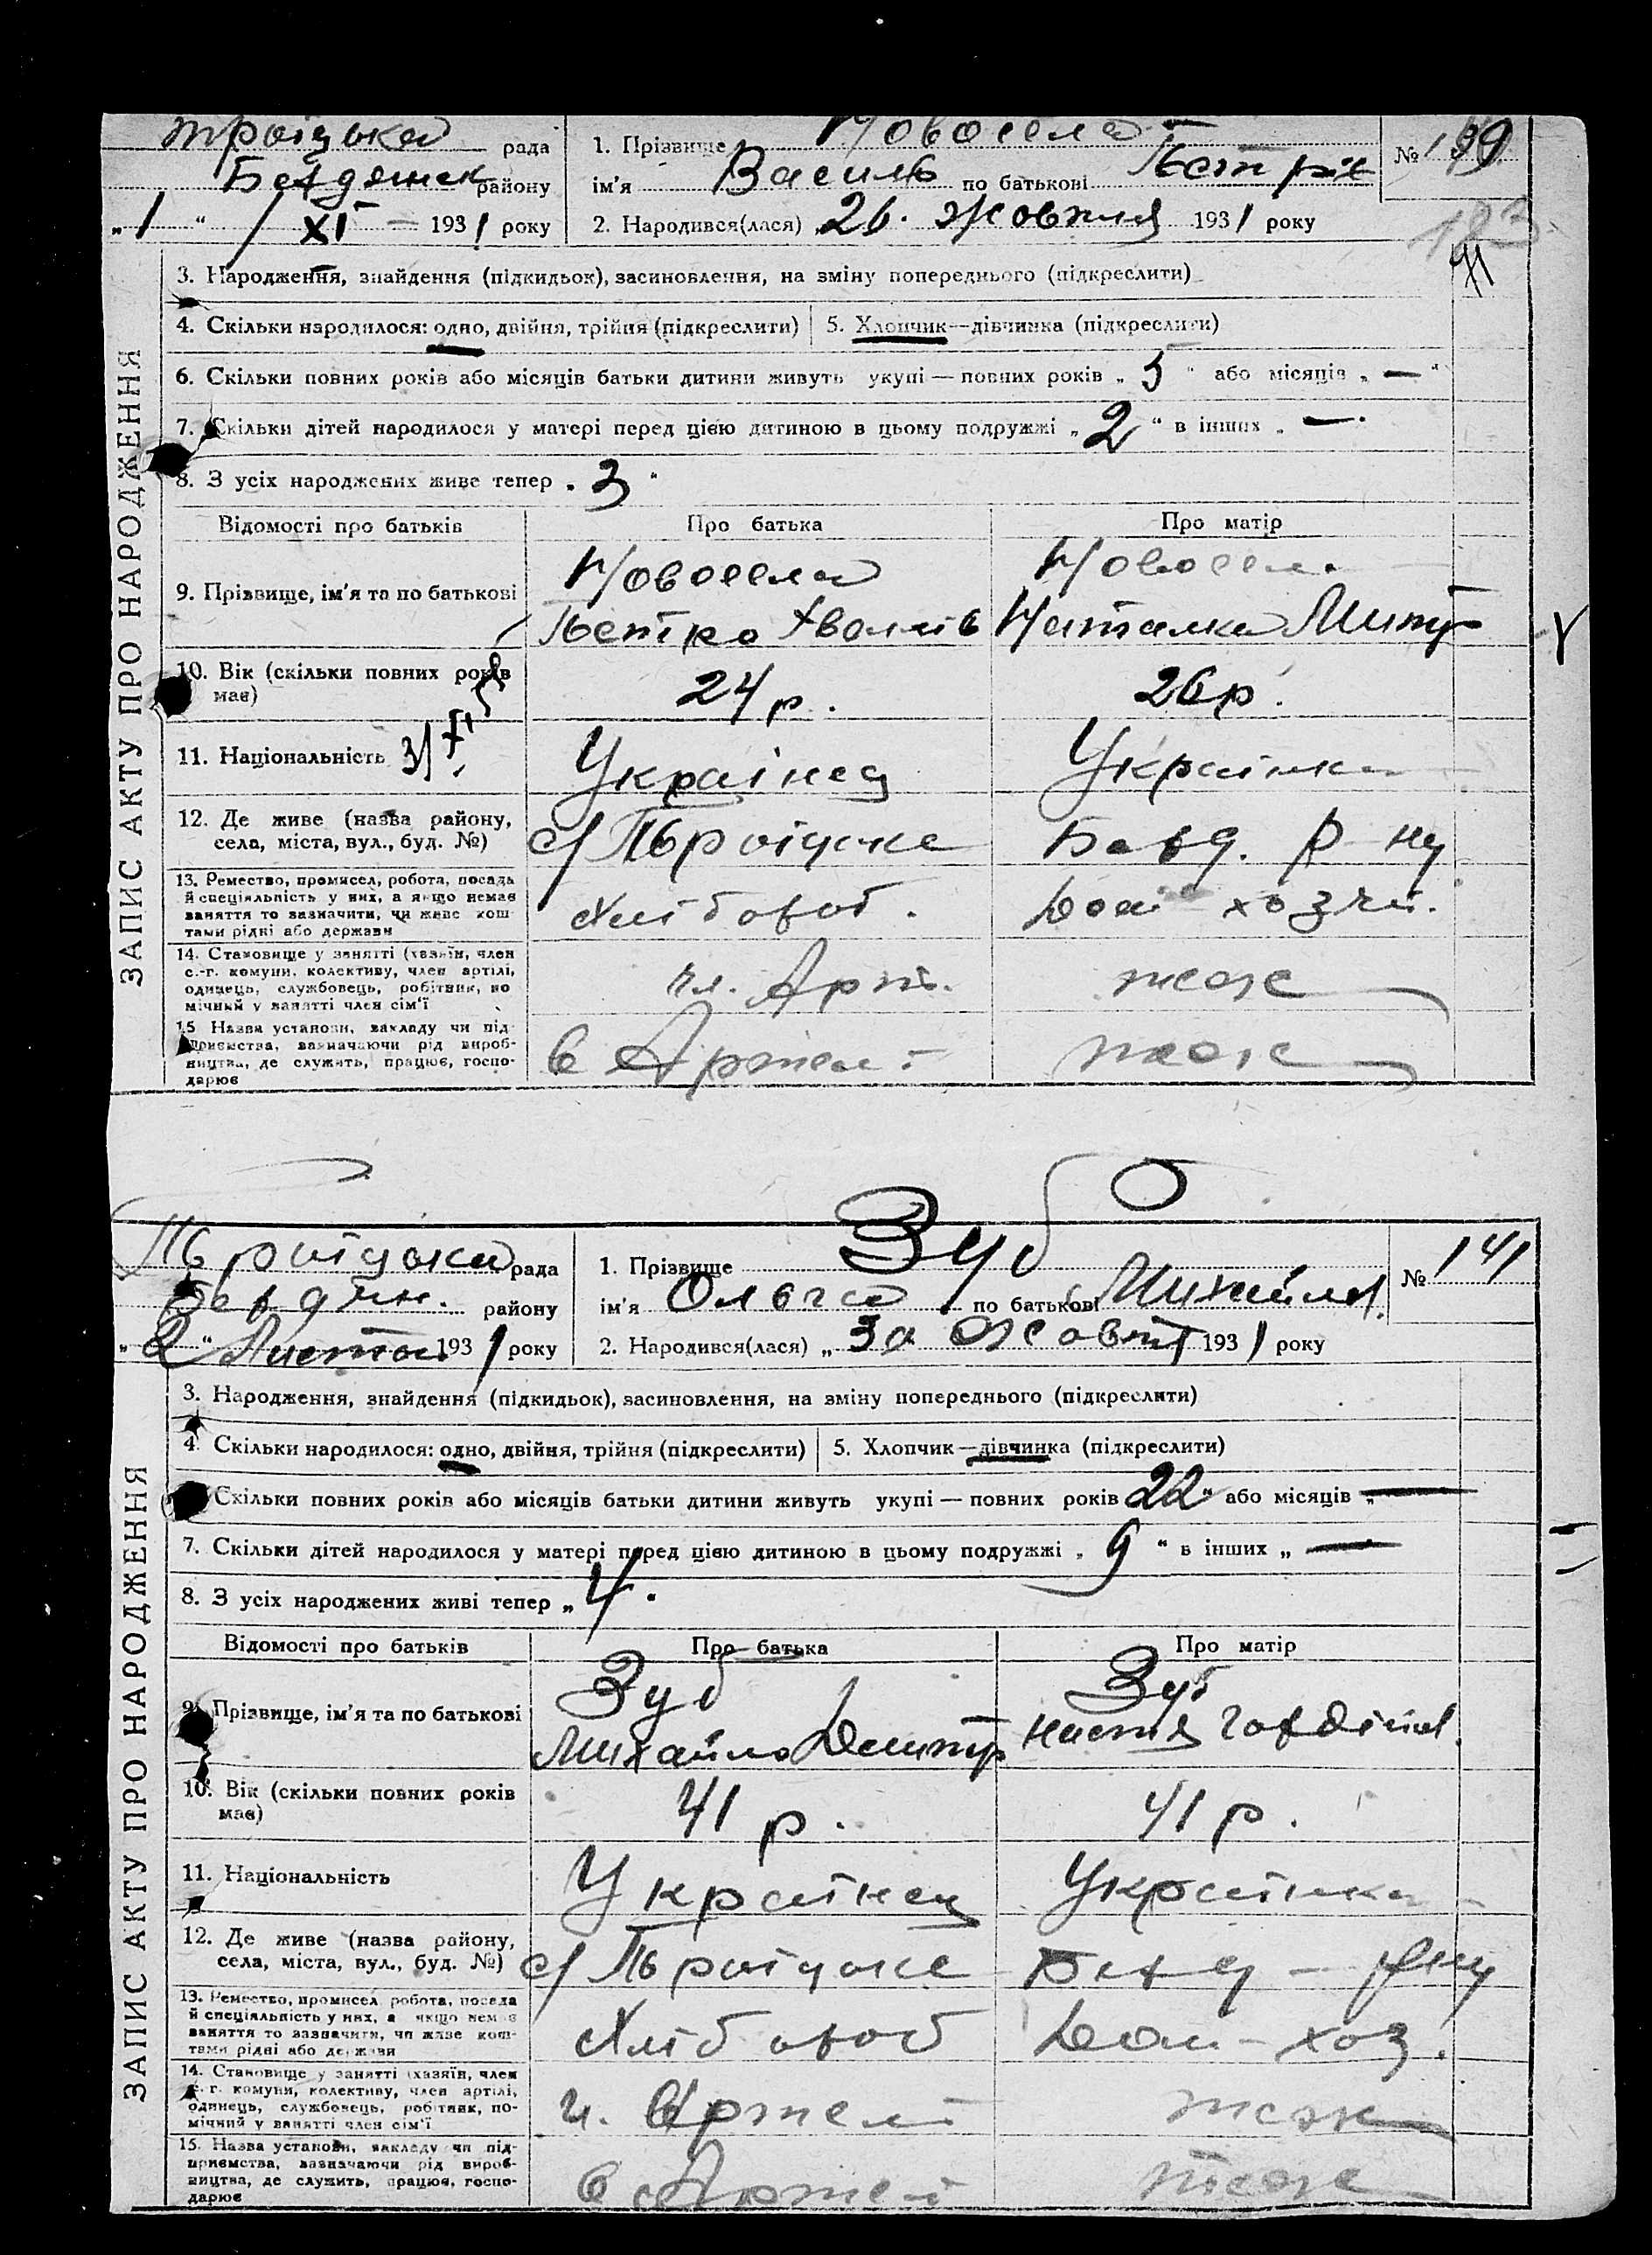 Троіцька рада
Бердянськ району
„1“ XI 1931 року
1. Прізвище Новосела
ім'я Василь по батькові Петрів
2. Народився(лася) „26. Жовтня 1931 року
№ 139
183
3. Народження, знайдення (підкидьок), засиновлення, на зміну попереднього (підкреслити)
4. Скільки народилося: одно, двійня, трійня (підкреслити) 5. Хлопчик—дівчинка (підкреслити)
6. Скільки повних років або місяців батьки дитини живуть укупі — повних років „5“ або місяців „—“
7. Скільки дітей народилося у матері перед цією дитиною в цьому подружжі „2“ в інших „—
8. З усіх народжених живе тепер „3“
Відомості про батьків Про батька Про матір
9. Прізвище, ім'я та по батькові
Новосела
Петро
Новосела
Наталка Мит
10. Вік (скільки повних років має) 24 р. 26 р.
11. Національність Українец Українка
12. Де живе (назва району, села, міста, вул., буд. №) с/ Троіцьке Берд. р-ну
13. Ремество, промисел, робота, посада
й спеціяльність у них, а якщо немає
заняття то зазначити, чи живе кош-
тами рідні або держави
Хлібороб. Дом хозяй.
14. Становище у занятті (хазяїн, член
с.-г. комуни, колективу, член артілі,
одинець, службовець, робітник, по
мічний у занятті член сім'ї
чл. Арт. теж
15 Назва установи, закладу чи під
приємства, зазначаючи рід вироб-
ництва, де служить, працює, госпо-
дарює
в Артелі теж
ЗАПИС АКТУ ПРО НАРОДЖЕННЯ
Троіцька рада
Бердян. району
„2“ Листоп 1931 року
1. Прізвище Зуб
ім'я Ольга по батькові Михайлов.
2. Народився(лася) „30 Жовтн 1931 року
№ 141
3. Народження, знайдення (підкидьок), засиновлення, на зміну попереднього (підкреслити)
4. Скільки народилося: одно, двійня, трійня (підкреслити) 5. Хлопчик—дівчинка (підкреслити)
Скільки повних років або місяців батьки дитини живуть укупі — повних років 22“ або місяців „—
7. Скільки дітей народилося у матері перед цією дитиною в цьому подружжі „9“ в інших „—
8. З усіх народжених живі тепер „4“
Відомості про батьків Про батька Про матір
9. Прізвище, ім'я та по батькові
Зуб
Михайло Дмитр
Зуб
Настя Гордіїв.
10. Вік (скільки повних років має) 41 р. 41 р.
11. Національність Українец Українка
12. Де живе (назва району, села, міста, вул., буд. №) с/ Троіцьке Берд - р-ну
13. Ремество, промисел, робота, посада
й спеціяльність у них, а якщо немає
заняття то зазначити, чи живе кош-
тами рідні або держави
Хлібороб Дом-хоз.
14. Становище у занятті (хазяїн, член
с.-г. комуни, колективу, член артілі,
одинець, службовець, робітник, по-
мічний у занятті член сім'ї
ч. Артелі теж
15. Назва установи, закладу чи під-
приємства, зазначаючи рід вироб-
ництва, де служить, працює, госпо-
дарює
в Артелі теж
ЗАПИС АКТУ ПРО НАРОДЖЕННЯ